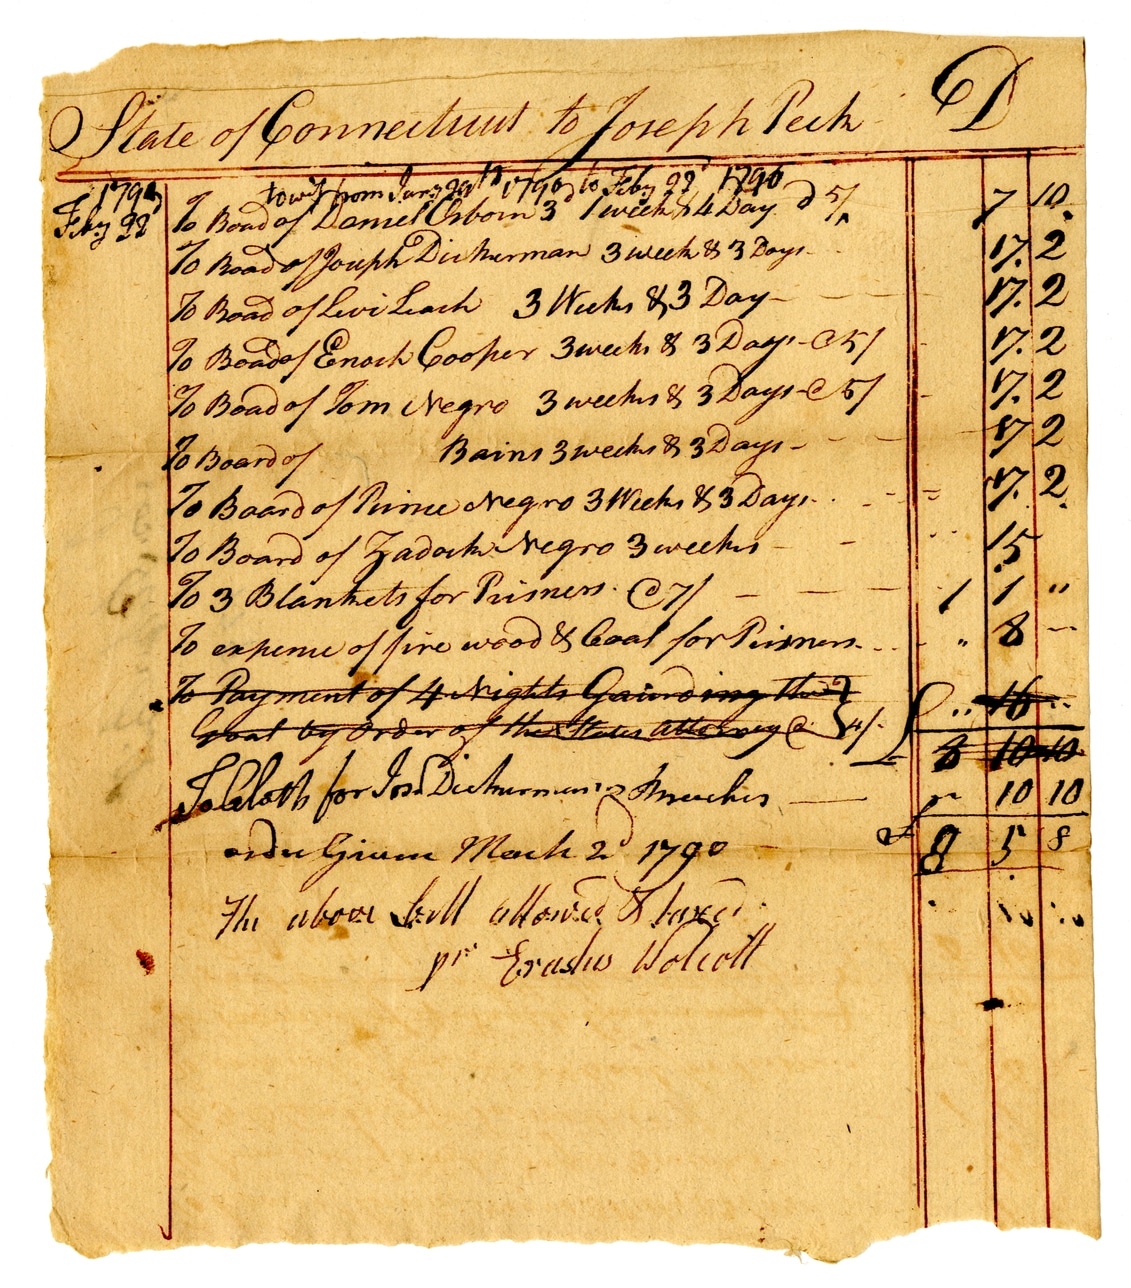 State of Connecticut to Joseph Peck D
1790 towit from Jany 29th 1790 to Feby 22d 1790
Feby 22d To Board of Daniel Osborn 3d 1 week & 4 Day @ 5/ 7 10
To Board of Joseph Dickerman 3 week & 3 Days 17. 2
To Board of Levi Leach 3 Weeks & 3 Day 17. 2
To Board of Enoch Cooper 3 weeks & 3 Days @ 5/ 17. 2
To Board of Tom Negro 3 weeks & 3 Days @ 5/ 17. 2
To Board of Bains 3 weeks & 3 Days 17 2
To Board of Prince Negro 3 Weeks & 3 Days 17. 2
To Board of Zadock Negro 3 weeks 15
To 3 Blankets for Prisners @ 7/ 1 1 "
To expense of fire wood & Coal for Prisners " 8 —
To Payment of 4 Nights Gairding the
Goal by Order of the States attorney @ 4/ £ " 16 "
8 10 10
To Cloth for Josh Dickerman's Breeches 10 10
order Given March 2d 1790 £ 8 5 8
The above bill allowed & taxed
pr Erastus Wolcott